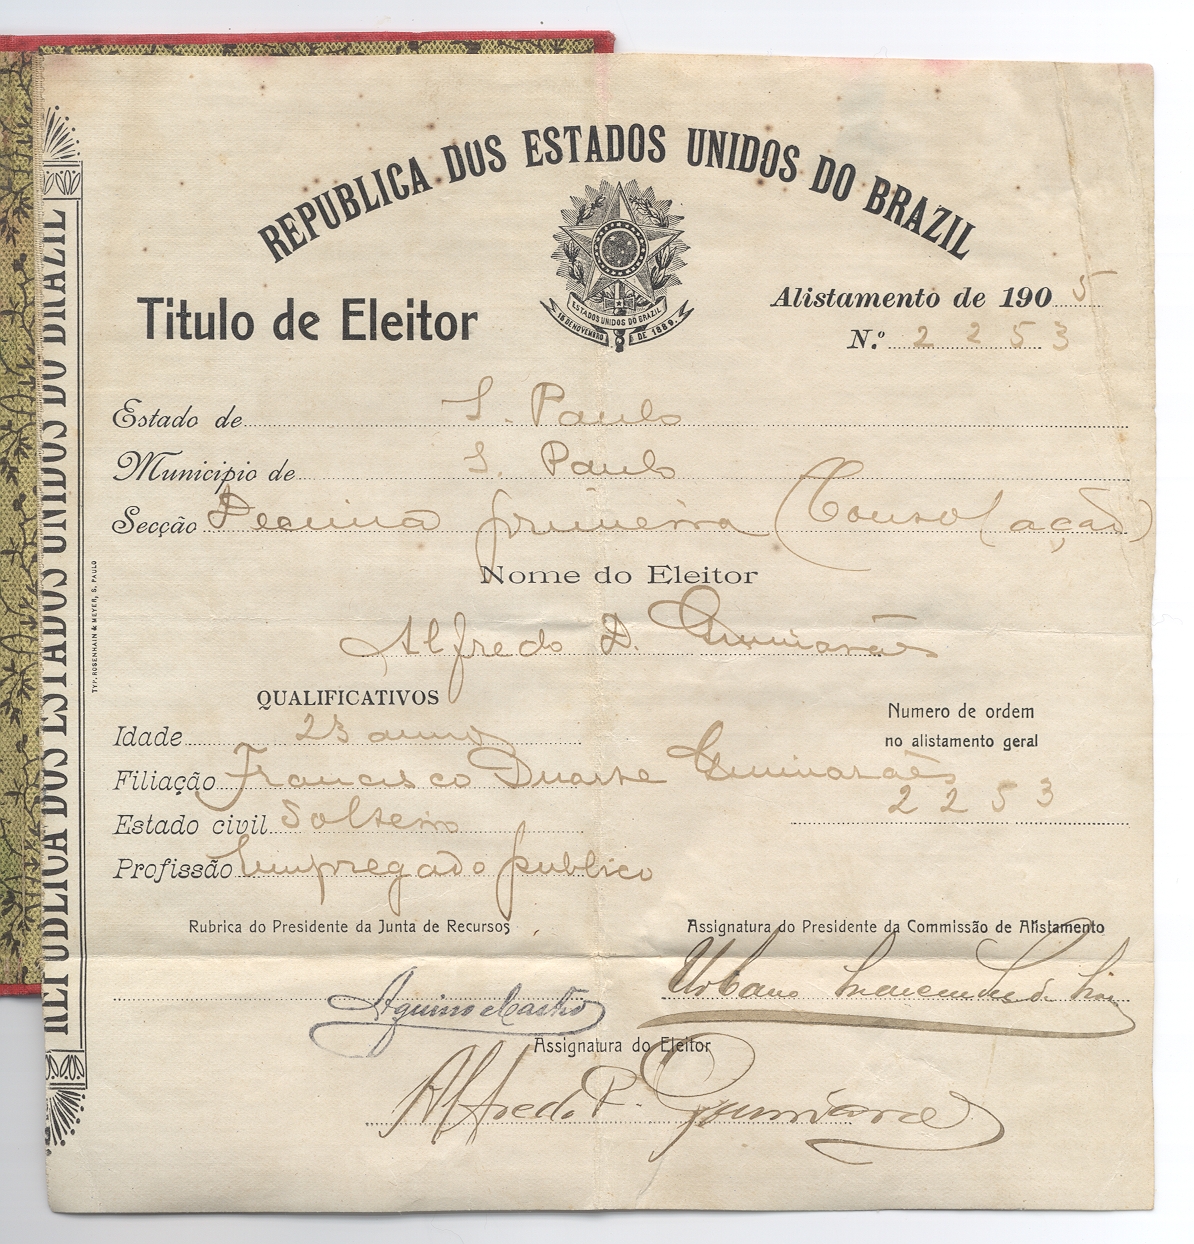 REPUBLICA DOS ESTADOS UNIDOS DO BRAZIL
ESTADOS UNIDOS DO BRAZIL
15 DE NOVEMBRO DE 1889.
Titulo de Eleitor
Alistamento de 1905
N.º 2253
Estado de S. Paulo
Municipio de S. Paulo
Secção Decima primeira (Consolação)
Nome do Eleitor
Alfredo D. Guimarães
QUALIFICATIVOS
Numero de ordem
no alistamento geral
2253
Idade 23 annos
Filiação Francisco Duarte Guimarães
Estado civil Solteiro
Profissão Empregado publico
Rubrica do Presidente da Junta de Recursos
Assignatura do Presidente da Commissão de Alistamento
Aquino e Castro
Urbano
Assignatura do Eleitor
Alfredo Guimarães
REPUBLICA DOS ESTADOS UNIDOS DO BRAZIL
TYP. ROSENHAIN & MEYER, S. PAULO